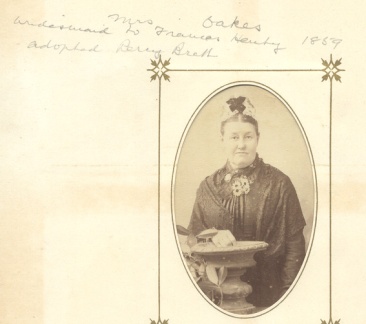 Mrs Oakes
bridesmaid to Frances Henty 1859
- adopted Percy Brett